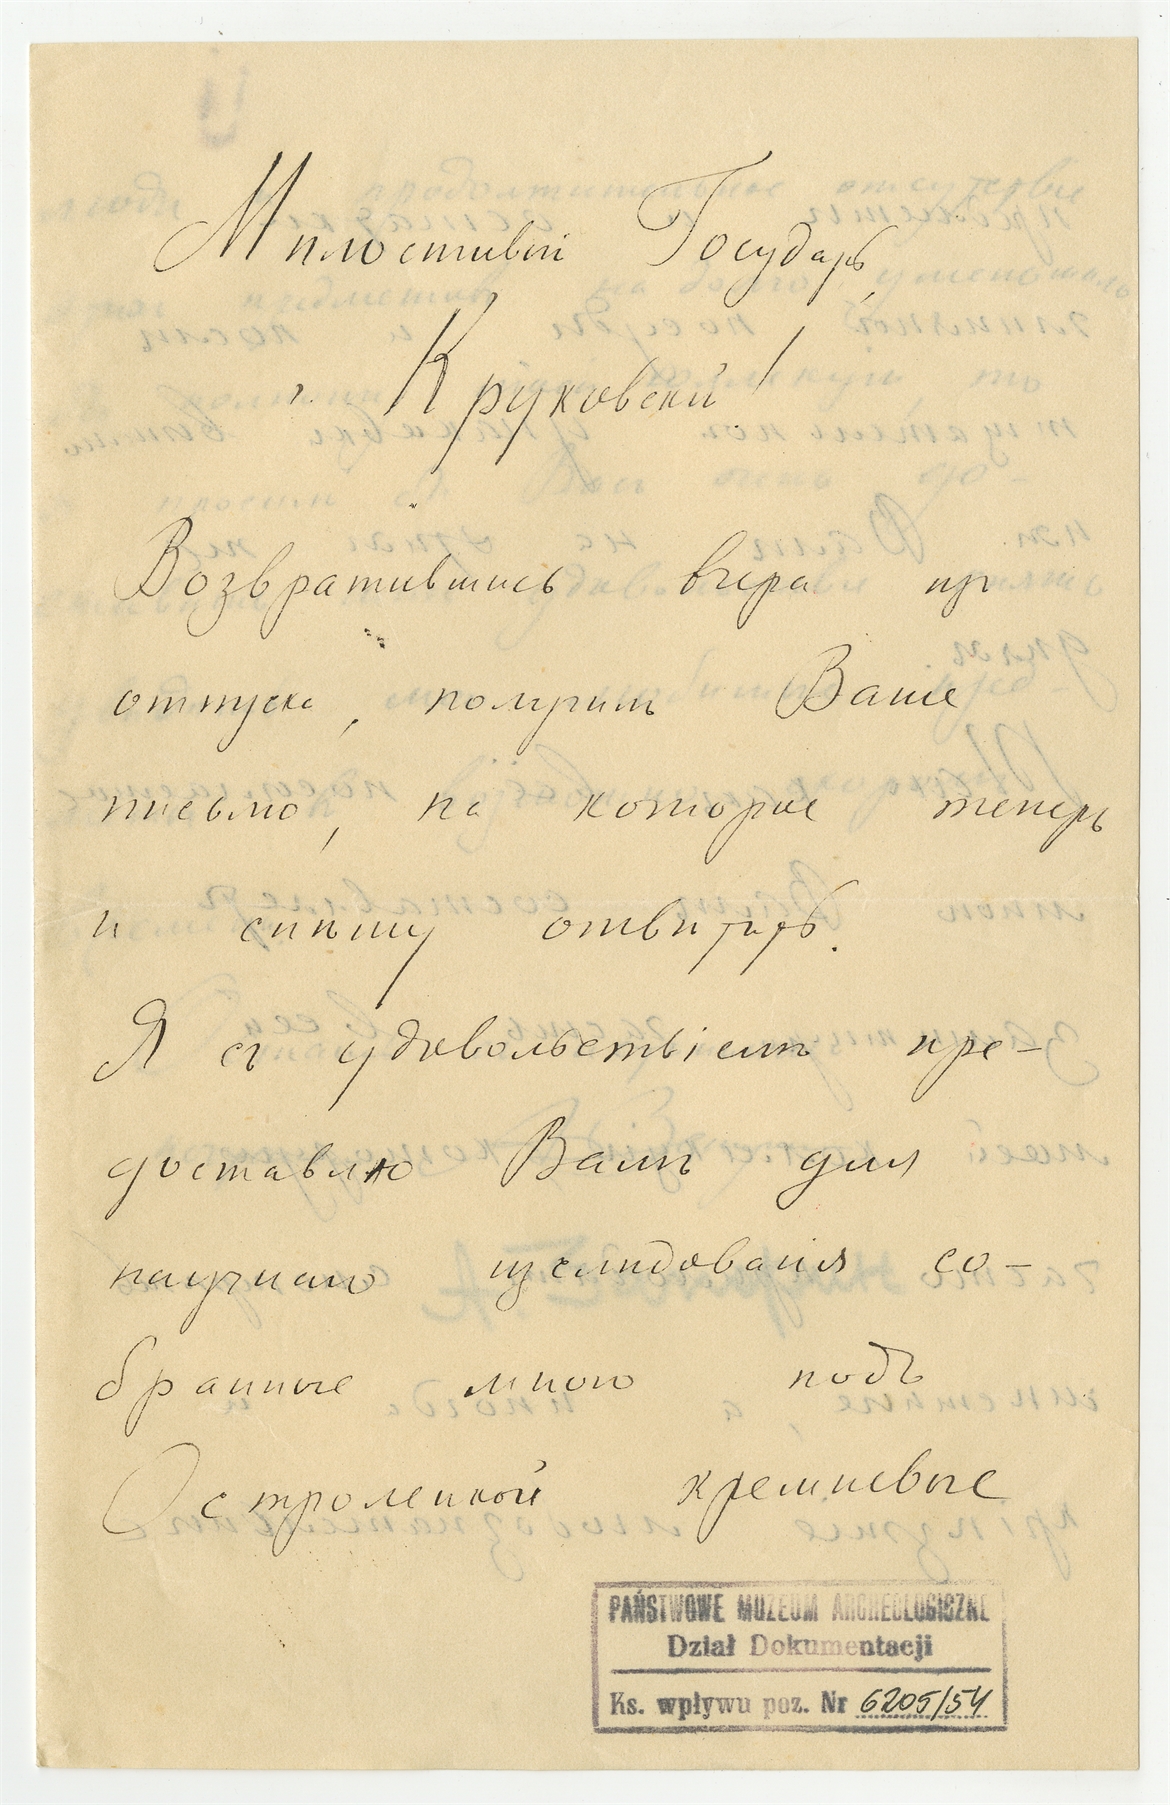 Милостивый Государь,
г. Круковский!
Возвратившись вчера изъ
отпуска, получилъ Ваше
письмо, на которое теперь
и спѣшу отвѣтить.
Я съ удовольствіемъ пре-
доставлю Вамъ для
научнаго изслѣдованія со-
бранные мною подъ
Остроленкой кремневые
PAŃSTWOWE MUZEUM ARCHEOLOGICZNE
Dział Dokumentacji
Ks. wpływu poz. Nr 6205/54